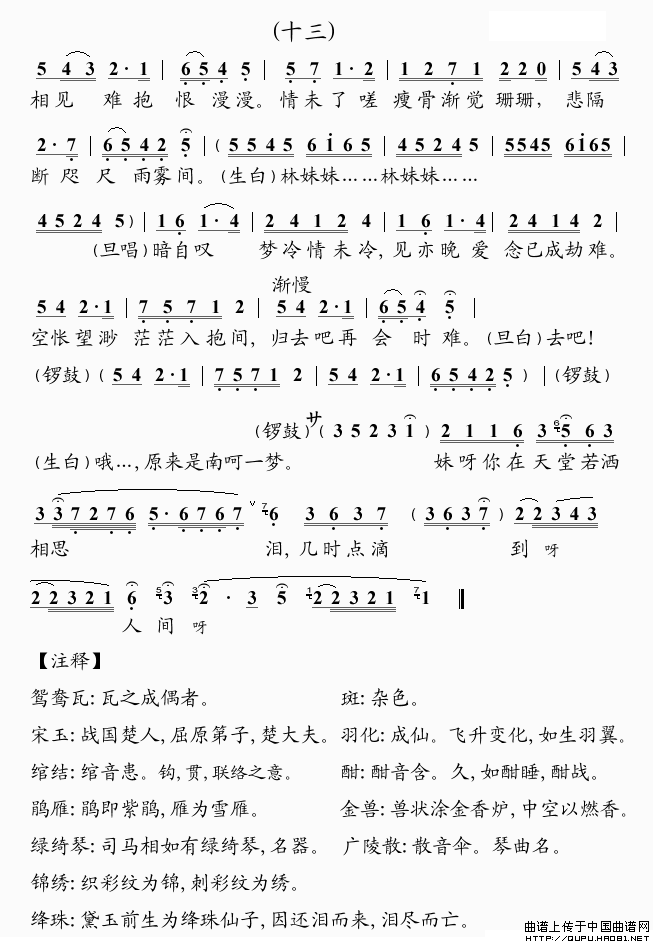 (十三)
5 4 3 2· 1 | 6 5 4 5 | 5 7 1· 2 | 1 2 7 1 2 2 0 | 5 4 3
相见 难抱 恨 漫漫。情未了嗟 瘦骨渐觉 珊珊, 悲隔
2· 7 | 6 5 4 2 5 | ( 5 5 4 5 6 i 6 5 | 4 5 2 4 5 | 5545 6i65 |
断咫尺 雨雾间。(生白)林妹妹……林妹妹……
4 5 2 4 5 ) | 1 6 1· 4 | 2 4 1 2 4 | 1 6 1· 4 | 2 4 1 4 2 |
(旦唱)暗自叹 梦冷情未冷,见亦晚爱 念已成劫难。
渐慢
5 4 2· 1 | 7 5 7 1 2 | 5 4 2· 1 | 6 5 4 5 |
空怅望渺 茫茫入抱间, 归去吧再 会 时难。(旦白)去吧!
(锣鼓)( 5 4 2· 1 | 7 5 7 1 2 | 5 4 2· 1 | 6 5 4 2 5 ) | (锣鼓)
(锣鼓)サ( 3 5 2 3 1 ) 2 1 1 6 3 6 5 6 3
(生白)哦…,原来是南呵一梦。 妹呀你在天堂若洒
3 3 7 2 7 6 5· 6 7 6 7 ∨ 7 6 3 6 3 7 ( 3 6 3 7 ) 2 2 3 4 3
相思 泪,几时点滴 到 呀
2 2 3 2 1 6 5 3 3 2 · 3 5 1 2 2 3 2 1 7 1
人 间 呀
【注释】
鸳鸯瓦:瓦之成偶者。 斑:杂色。
宋玉:战国楚人,屈原第子,楚大夫。羽化:成仙。飞升变化,如生羽翼。
绾结:绾音患。钩,贯,联络之意。 酣:酣音含。久,如酣睡,酣战。
鹃雁:鹃即紫鹃,雁为雪雁。 金兽:兽状涂金香炉,中空以燃香。
绿绮琴:司马相如有绿绮琴,名器。 广陵散:散音伞。琴曲名。
锦绣:织彩纹为锦,刺彩纹为绣。
绛珠:黛玉前生为绛珠仙子,因还泪而来,泪尽而亡。
曲谱上传于中国曲谱网
HTTP://QUPU.HAO81.NET